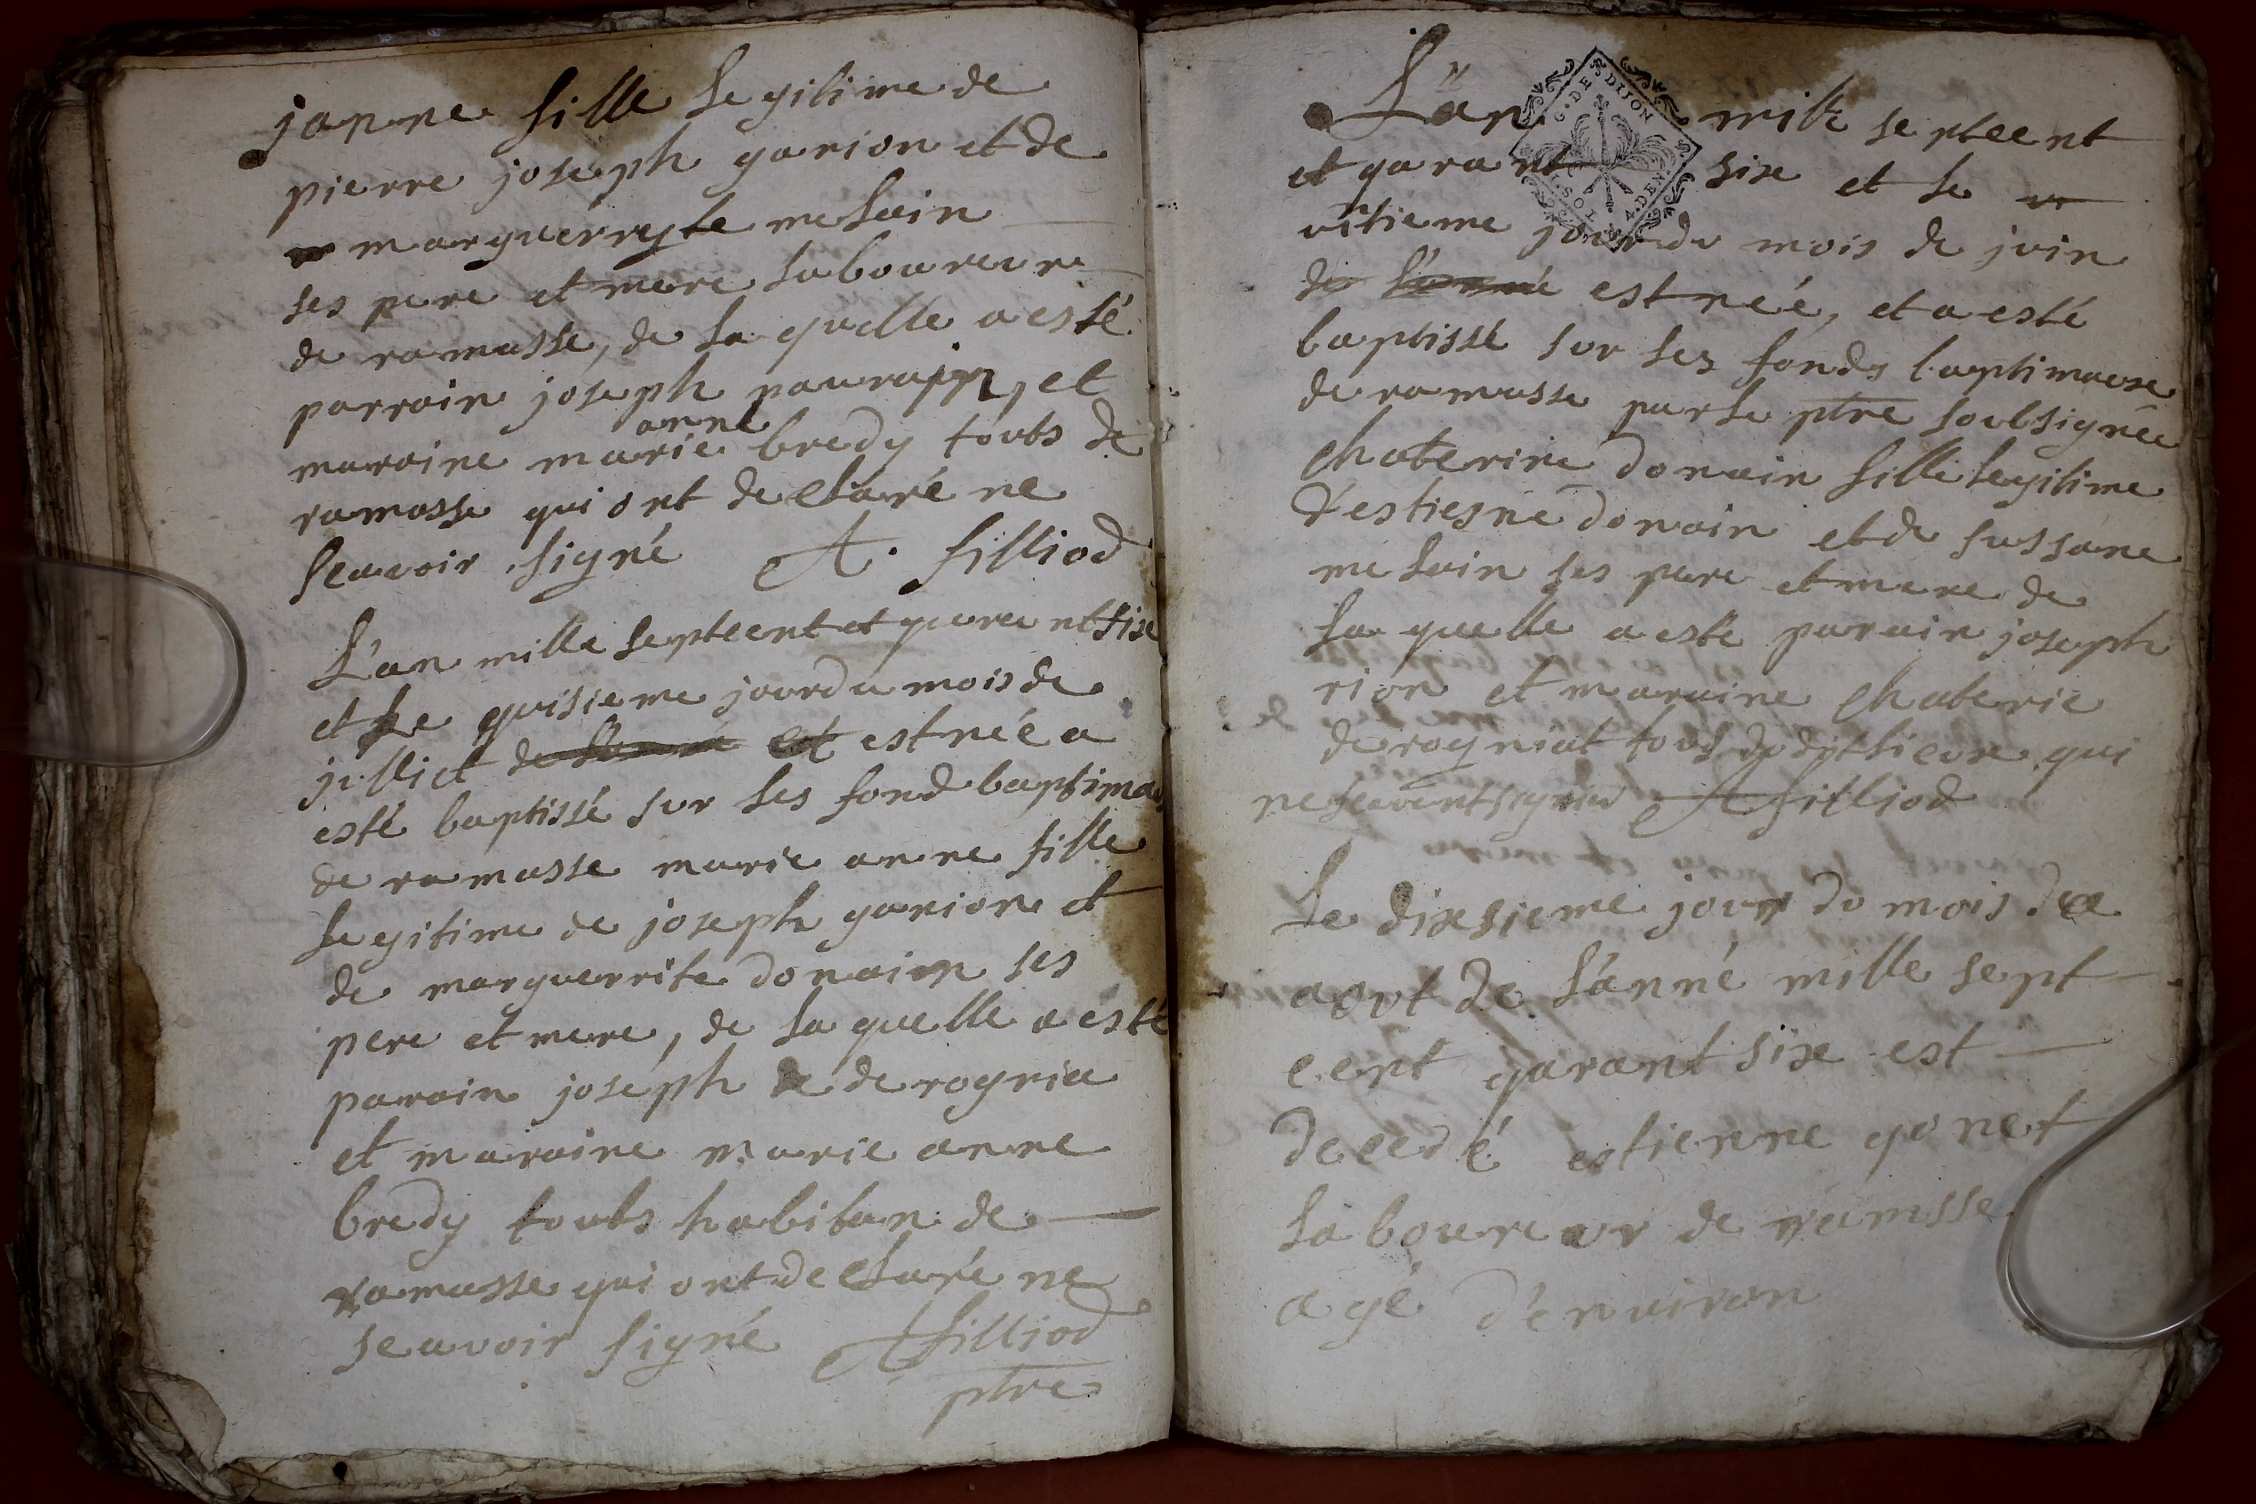 janne fille legitime de
pierre joseph garion et de
marguerryte melain
ses pere et mere laboureur
de ramasse, de la quelle a esté
parrain joseph paurain, et
anne
maraine marie bredy touts de
ramasse qui ont declaré ne
scavoir signé A. filliod
L'an mille septcent et quarantsixe
et le quisieme jour du mois de
jullict est née a
esté baptissé sur les fond baptimaux
de ramasse marie anne fille
legitime de joseph garion et
de marguerrite donain ses
pere et mere, de la quelle a esté
parain joseph de rognia
et maraine marie anne
bredy touts habitan de
ramasse qui ont declaré ne
scavoir signé A filliod
ptre
G. DE DIJON
L'an mille septcent
et garant sixe et le
vitieme jour du mois de juin
est née, et a esté
baptissé sur les fonds baptimaux
de ramasse par le ptre soubsignée
chaterine donain fille legitime
d'estiesne donain et de sussane
melain ses pere et mere de
la quelle a esté parain joseph
rion et maraine chaterie
de rogniat tous qui
ne scavent signer A filliod
Le dixsieme jour du mois de
aout de l'anné mille sept
cent garant sixe est
decedé estienne gonet
laboureur de ramsse
agé d'environ